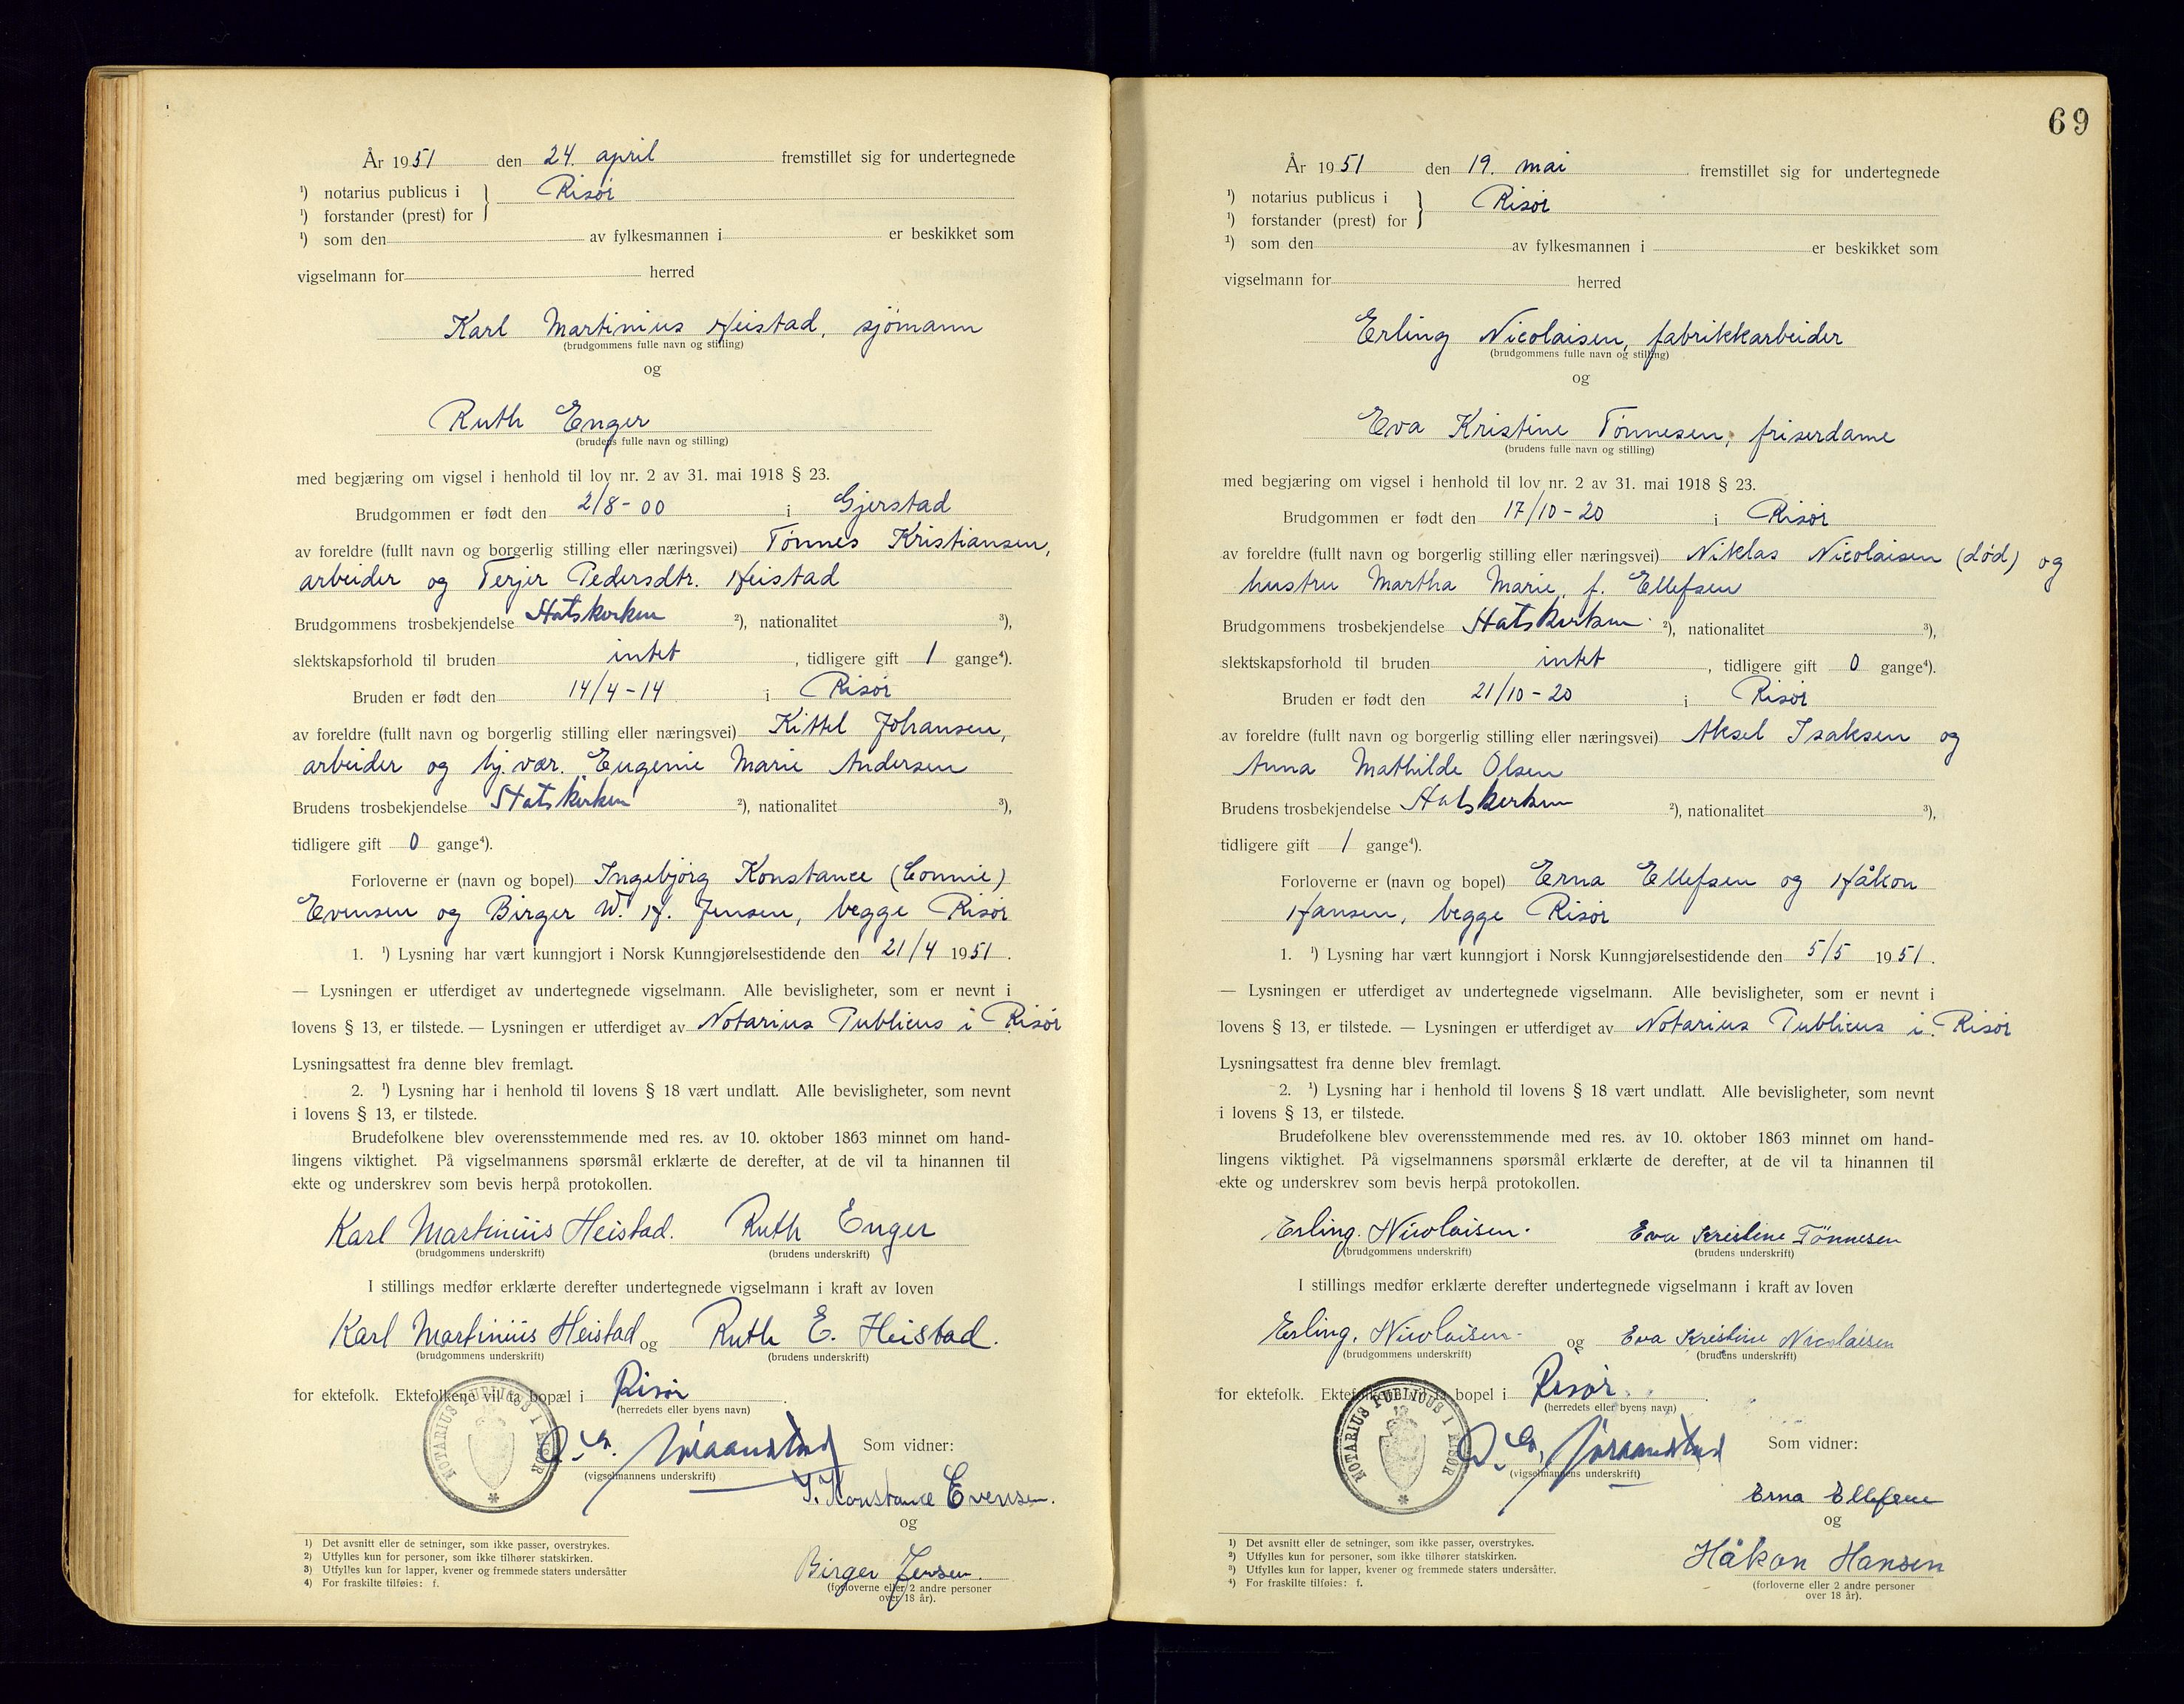 År 1951 den 24. april fremstillet sig for undertegnede
¹) notarius publicus i } Risör
¹) forstander (prest) for
¹) som den av fylkesmannen i er beskikket som
vigselmann for herred
Karl Martinius Heistad, sjömann
(brudgommens fulle navn og stilling)
og
Ruth Enger
(brudens fulle navn og stilling)
med begjæring om vigsel i henhold til lov nr. 2 av 31. mai 1918 § 23.
Brudgommen er født den 2/8-00 i Gjerstad
av foreldre (fullt navn og borgerlig stilling eller næringsvei) Tönnes Kristiansen,
arbeider og Terjer Pedersdtr. Heistad
Brudgommens trosbekjendelse Statskirken ²), nationalitet ³),
slektskapsforhold til bruden intet, tidligere gift 1 gange⁴).
Bruden er født den 14/4-14 i Risör
av foreldre (fullt navn og borgerlig stilling eller næringsvei) Kittel Johansen,
arbeider og hj.vær. Eugenie Marie Andersen
Brudens trosbekjendelse Statskirken ²), nationalitet ³),
tidligere gift 0 gange⁴).
Forloverne er (navn og bopel) Ingebjörg Konstance (Connie)
Evensen og Birger W. H. Jensen, begge Risör
1. ¹) Lysning har vært kunngjort i Norsk Kunngjørelsestidende den 21/4 1951.
— Lysningen er utferdiget av undertegnede vigselmann. Alle bevisligheter, som er nevnt i
lovens § 13, er tilstede. — Lysningen er utferdiget av Notarius Publicus i Risör
Lysningsattest fra denne blev fremlagt.
2. ¹) Lysning har i henhold til lovens § 18 vært undlatt. Alle bevisligheter, som nevnt
i lovens § 13, er tilstede.
Brudefolkene blev overensstemmende med res. av 10. oktober 1863 minnet om hand-
lingens viktighet. På vigselmannens spørsmål erklærte de derefter, at de vil ta hinannen til
ekte og underskrev som bevis herpå protokollen.
Karl Martinius Heistad. Ruth Enger
(brudgommens underskrift) (brudens underskrift)
I stillings medfør erklærte derefter undertegnede vigselmann i kraft av loven
Karl Martinius Heistad og Ruth E. Heistad.
(brudgommens underskrift) (brudens underskrift)
for ektefolk. Ektefolkene vil ta bopæl i Risör.
(herredets eller byens navn)
NOTARIUS PUBLICUS I RISØR
Som vidner:
(vigselmannens underskrift)
I. Konstance Evensen.
og
Birger Jensen.
(forloverne eller 2 andre personer
over 18 år).
¹) Det avsnitt eller de setninger, som ikke passer, overstrykes.
²) Utfylles kun for personer, som ikke tilhører statskirken.
³) Utfylles kun for lapper, kvener og fremmede staters undersåtter
⁴) For fraskilte tilføies: f.
69
År 1951 den 19. mai fremstillet sig for undertegnede
¹) notarius publicus i } Risör
¹) forstander (prest) for
¹) som den av fylkesmannen i er beskikket som
vigselmann for herred
Erling Nicolaisen, fabrikkarbeider
(brudgommens fulle navn og stilling)
og
Eva Kristine Tönnesen, friserdame
(brudens fulle navn og stilling)
med begjæring om vigsel i henhold til lov nr. 2 av 31. mai 1918 § 23.
Brudgommen er født den 17/10-20 i Risör
av foreldre (fullt navn og borgerlig stilling eller næringsvei) Niklas Nicolaisen (död) og
hustru Martha Marie, f. Ellefsen
Brudgommens trosbekjendelse Statskirken ²), nationalitet ³),
slektskapsforhold til bruden intet, tidligere gift 0 gange⁴).
Bruden er født den 21/10-20 i Risör
av foreldre (fullt navn og borgerlig stilling eller næringsvei) Aksel Isaksen og
Anna Mathilde Olsen
Brudens trosbekjendelse Statskirken ²), nationalitet ³),
tidligere gift 1 gange⁴).
Forloverne er (navn og bopel) Erna Ellefsen og Håkon
Hansen, begge Risör
1. ¹) Lysning har vært kunngjort i Norsk Kunngjørelsestidende den 5/5 1951.
— Lysningen er utferdiget av undertegnede vigselmann. Alle bevisligheter, som er nevnt i
lovens § 13, er tilstede. — Lysningen er utferdiget av Notarius Publicus i Risör
Lysningsattest fra denne blev fremlagt.
2. ¹) Lysning har i henhold til lovens § 18 vært undlatt. Alle bevisligheter, som nevnt
i lovens § 13, er tilstede.
Brudefolkene blev overensstemmende med res. av 10. oktober 1863 minnet om hand-
lingens viktighet. På vigselmannens spørsmål erklærte de derefter, at de vil ta hinannen til
ekte og underskrev som bevis herpå protokollen.
Erling Nicolaisen. Eva Kristine Tönnesen
(brudgommens underskrift) (brudens underskrift)
I stillings medfør erklærte derefter undertegnede vigselmann i kraft av loven
Erling. Nicolaisen. og Eva Kristine Nicolaisen
(brudgommens underskrift) (brudens underskrift)
for ektefolk. Ektefolkene vil ta bopel i Risör.
(herredets eller byens navn)
NOTARIUS PUBLICUS I RISØR
Som vidner:
(vigselmannens underskrift)
Erna Ellefsen
og
Håkon Hansen
(forloverne eller 2 andre personer
over 18 år).
¹) Det avsnitt eller de setninger, som ikke passer, overstrykes.
²) Utfylles kun for personer, som ikke tilhører statskirken.
³) Utfylles kun for lapper, kvener og fremmede staters undersåtter.
⁴) For fraskilte tilføies: f.